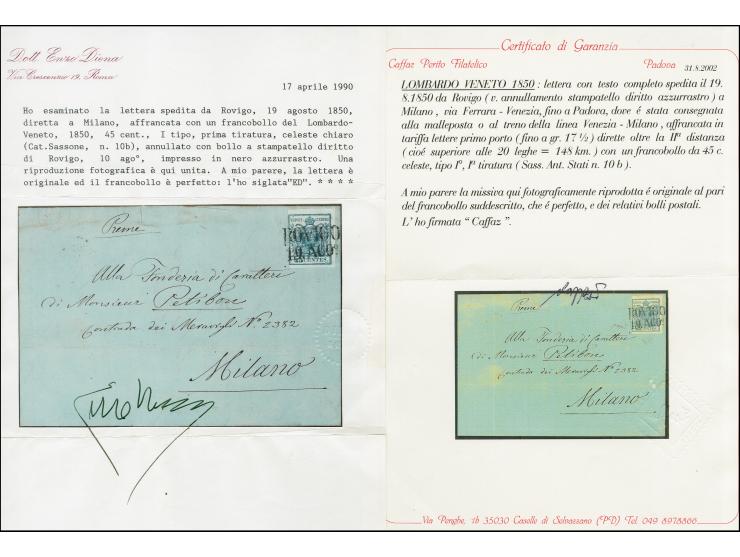 Dott. Enzo Diena
Via Crescenzio 19, Roma
17 aprile 1990
Ho esaminato la lettera spedita da Rovigo, 19 agosto 1850,
diretta a Milano, affrancata con un francobollo del Lombardo-
Veneto, 1850, 45 cent., I tipo, prima tiratura, celeste chiaro
(Cat.Sassone, n. 10b), annullato con bollo a stampatello diritto
di Rovigo, 10 ago°, impresso in nero azzurrastro. Una
riproduzione fotografica è qui unita. A mio parere, la lettera è
originale ed il francobollo è perfetto: l'ho siglata"ED". * * * *
Preme
ROVIGO
19. AGO.
CENTES
Alla Fonderia di Caratteri
di Monsieur Petibon
Contrada dei Meravigli N.° 2382
Milano
Certificato di Garanzia
Caffaz Perito Filatelico
Padova 31.8.2002
LOMBARDO VENETO 1850 : lettera con testo completo spedita il 19.
8.1850 da Rovigo ( v. annullamento stampatello diritto azzurrastro ) a
Milano , via Ferrara - Venezia, fino a Padova, dove é stata consegnata
alla malleposta o al treno della linea Venezia - Milano , affrancata in
tariffa lettere primo porto ( fino a gr. 17 ½ ) dirette oltre la IIª distanza
( cioé superiore alle 20 leghe = 148 km. ) con un francobollo da 45 c.
celeste, tipo I°, Iª tiratura ( Sass. Ant. Stati n. 10 b ).
A mio parere la missiva qui fotograficamente riprodotta é originale al pari
del francobollo suddescritto, che é perfetto, e dei relativi bolli postali.
L' ho firmata " Caffaz ".
Preme
ROVIGO
19. AGO.
Alla Fonderia di Caratteri
di Monsieur Petibon
Contrada dei Meravigli N.° 2382
Milano
Via Penghe, 1b 35030 Caselle di Selvazzano (PD) Tel. 049 8978866